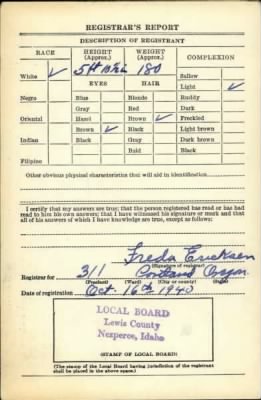 REGISTRAR'S REPORT
DESCRIPTION OF REGISTRANT
RACE HEIGHT (Approx.) WEIGHT (Approx.) COMPLEXION
White ✓ 5ft 10½in 180 Sallow
EYES HAIR Light ✓
Negro Blue Blonde Ruddy
Gray Red Dark
Oriental Hazel Brown ✓ Freckled
Brown ✓ Black Light brown
Indian Black Gray Dark brown
Bald Black
Filipino
Other obvious physical characteristics that will aid in identification
I certify that my answers are true; that the person registered has read or has had
read to him his own answers; that I have witnessed his signature or mark and that
all of his answers of which I have knowledge are true, except as follows:
Freda Ericksen
(Signature of registrar)
Registrar for 311 Portland Oregon
(Precinct) (Ward) (City or county) (State)
Date of registration Oct. 16th 1940
LOCAL BOARD
Lewis County
Nezperce, Idaho
(STAMP OF LOCAL BOARD)
(The stamp of the Local Board having jurisdiction of the registrant
shall be placed in the above space.)